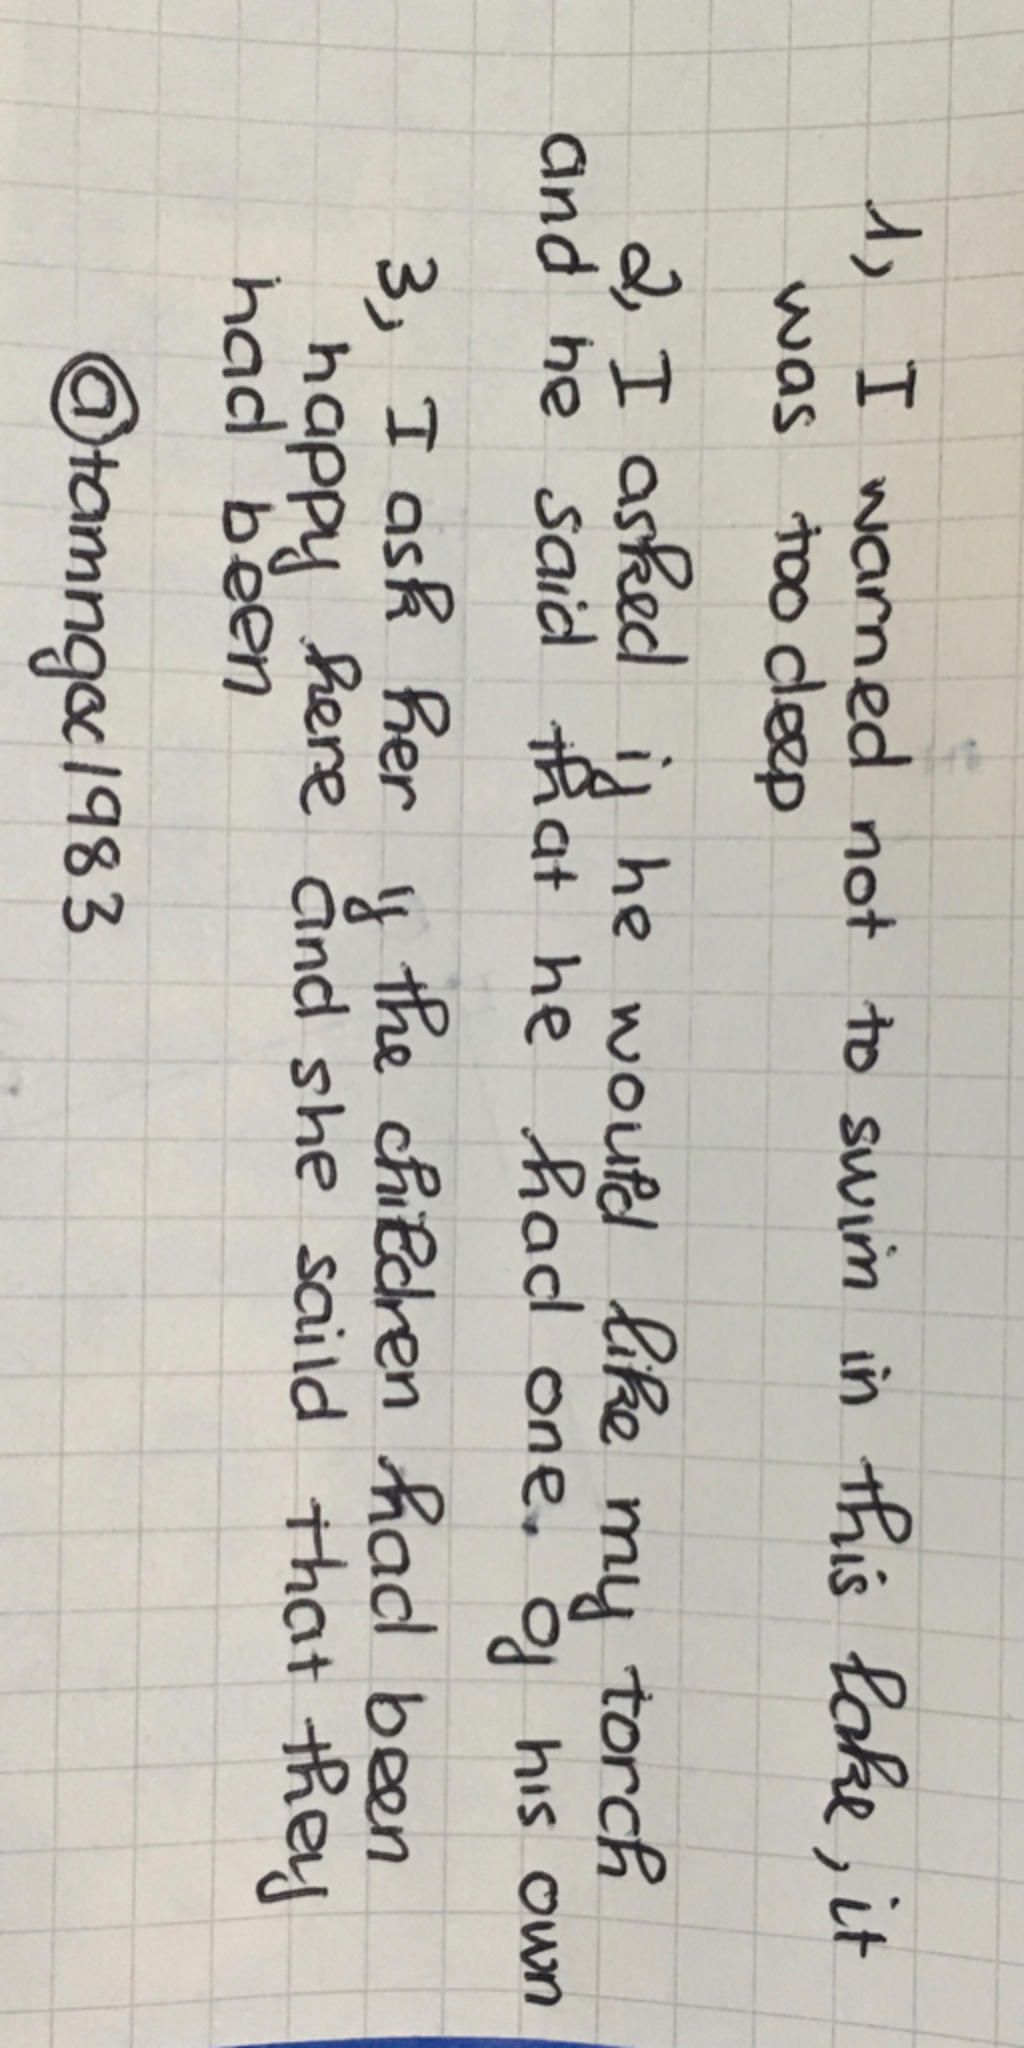 1, I warned not to swim in this lake, it
was too deep
2, I asked if he would like my torch
and he said that he had one. of his own
3, I ask her if the children had been
happy here and she saild that they
had been
@tamngox1983